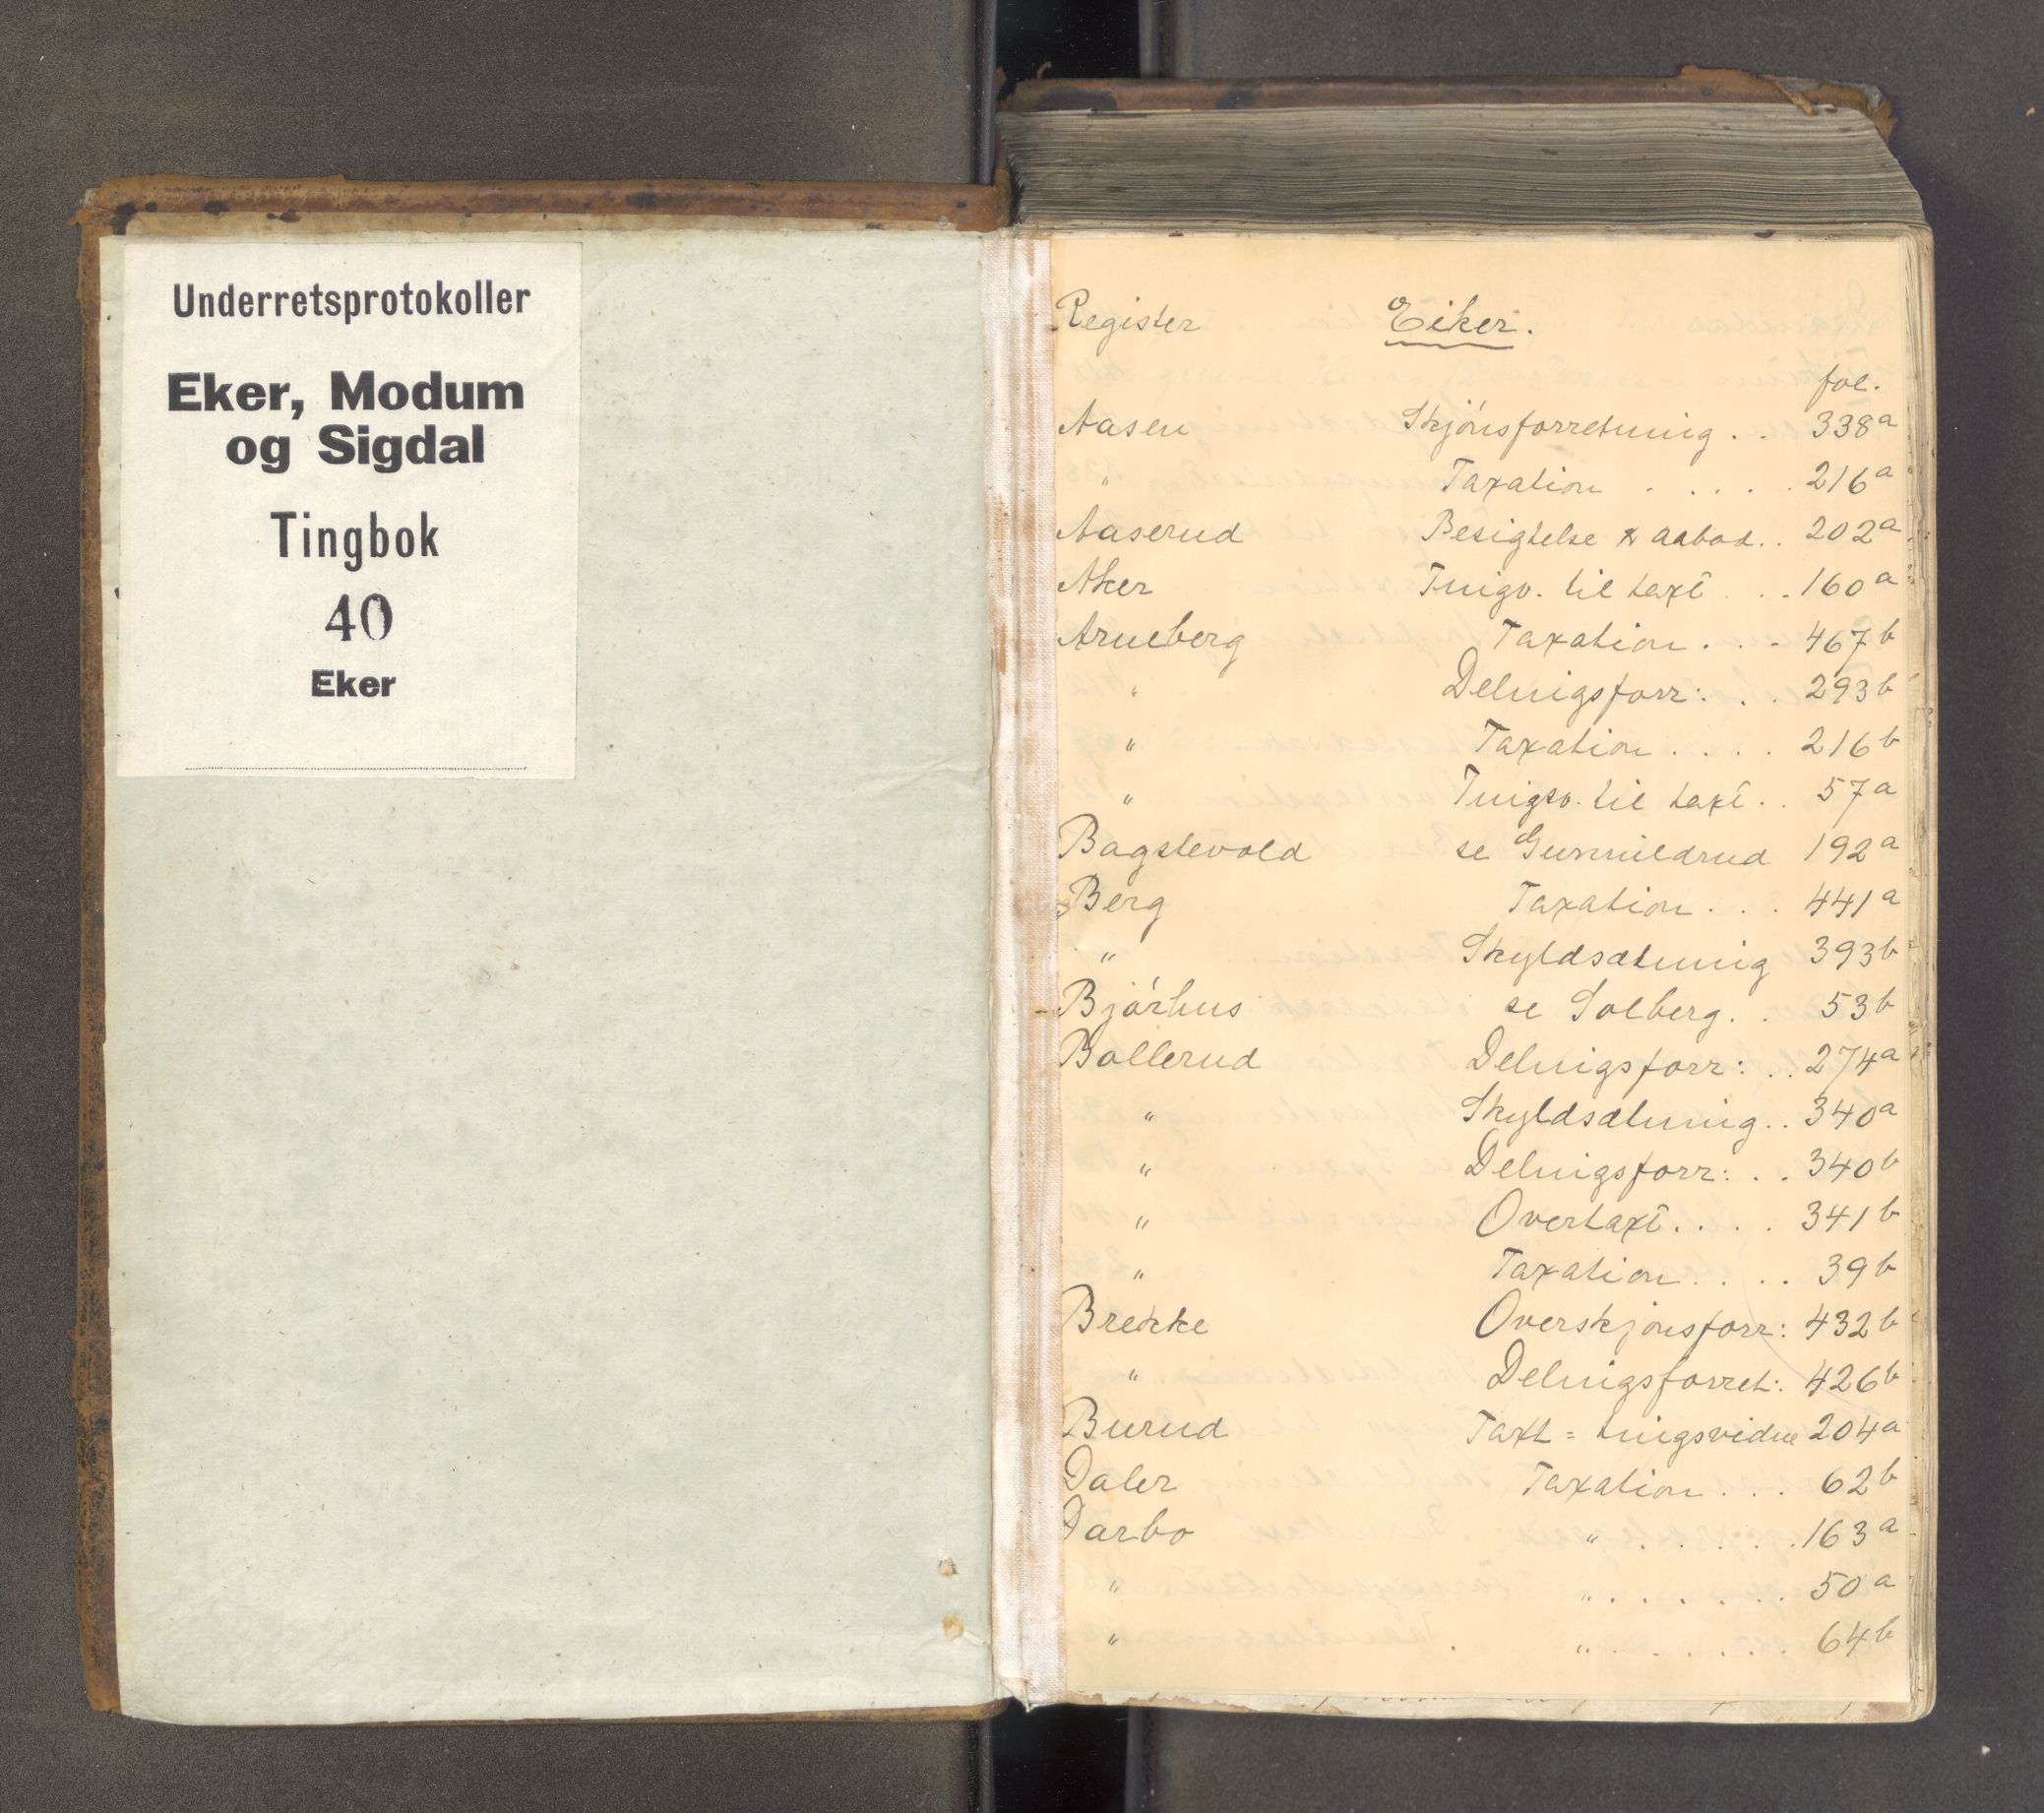 Underretsprotokoller
Eker, Modum
og Sigdal
Tingbok
40
Eker
Register Eiker.
fol.
Aasen Skjönsforretning . . 338a
" Taxation . . . . . 216a
Aaserud Besigtelse & aabod. . 202a
Aker Tingv. til taxt . . . 160a
Arneberg Taxation . . . 467b
" Delingsforr: . . 293b
" Taxation . . . . 216b
" Tingsv. til taxt . . 57a
Bagstevold se Gunnildrud 192a
Berg Taxation . . . 441a
" Skyldsætning 393b
Bjórhus se Solberg. . 53b
Bollerud Delingsforr: . . 274a
" Skyldsætning. . 340a
" Delingsforr: . . 340b
" Overtaxt. . . . 341b
" Taxation . . . . 39b
Brekke Overskjónsforr: 432b
" Delingsforret: 426b
Burud Taxt = tingsvidne 204a
Daler Taxation . . . 62b
Darbo " . . . . . 163a
" " . . . . . . 50a
" " . . . . . . 64b